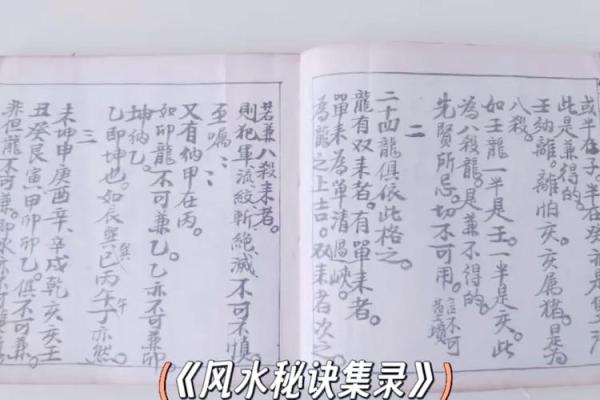 或半在子。半在癸亦是
此是兼得的。
壬納離。離怕亥。亥属猪。是為
八殺。
如壬龍一半是壬。一半是亥。此
為八殺龍。是兼不得的。
先賢所忌。切不可用。言不可
二
二十四龍俱依此格之。
龍有双耒者。有單耒者。
單耒為單清過峽。
為龍之上吉。双耒者次之。
若兼八殺耒者。
則犯軍流絞斬絶滅。不可不慎。
至囑：：
又有納甲在丙。
如卯龍不可兼乙。乙亦不可兼卯
坤納乙。
乙即坤也。如辰巽巳丙午丁亦然
巽 午
三
未坤申庚酉辛、辛戌乾亥、亥壬
丑癸艮寅甲卯、卯乙俱不可兼。
非但龍不可兼。即水亦不可兼
《风水秘诀集录》